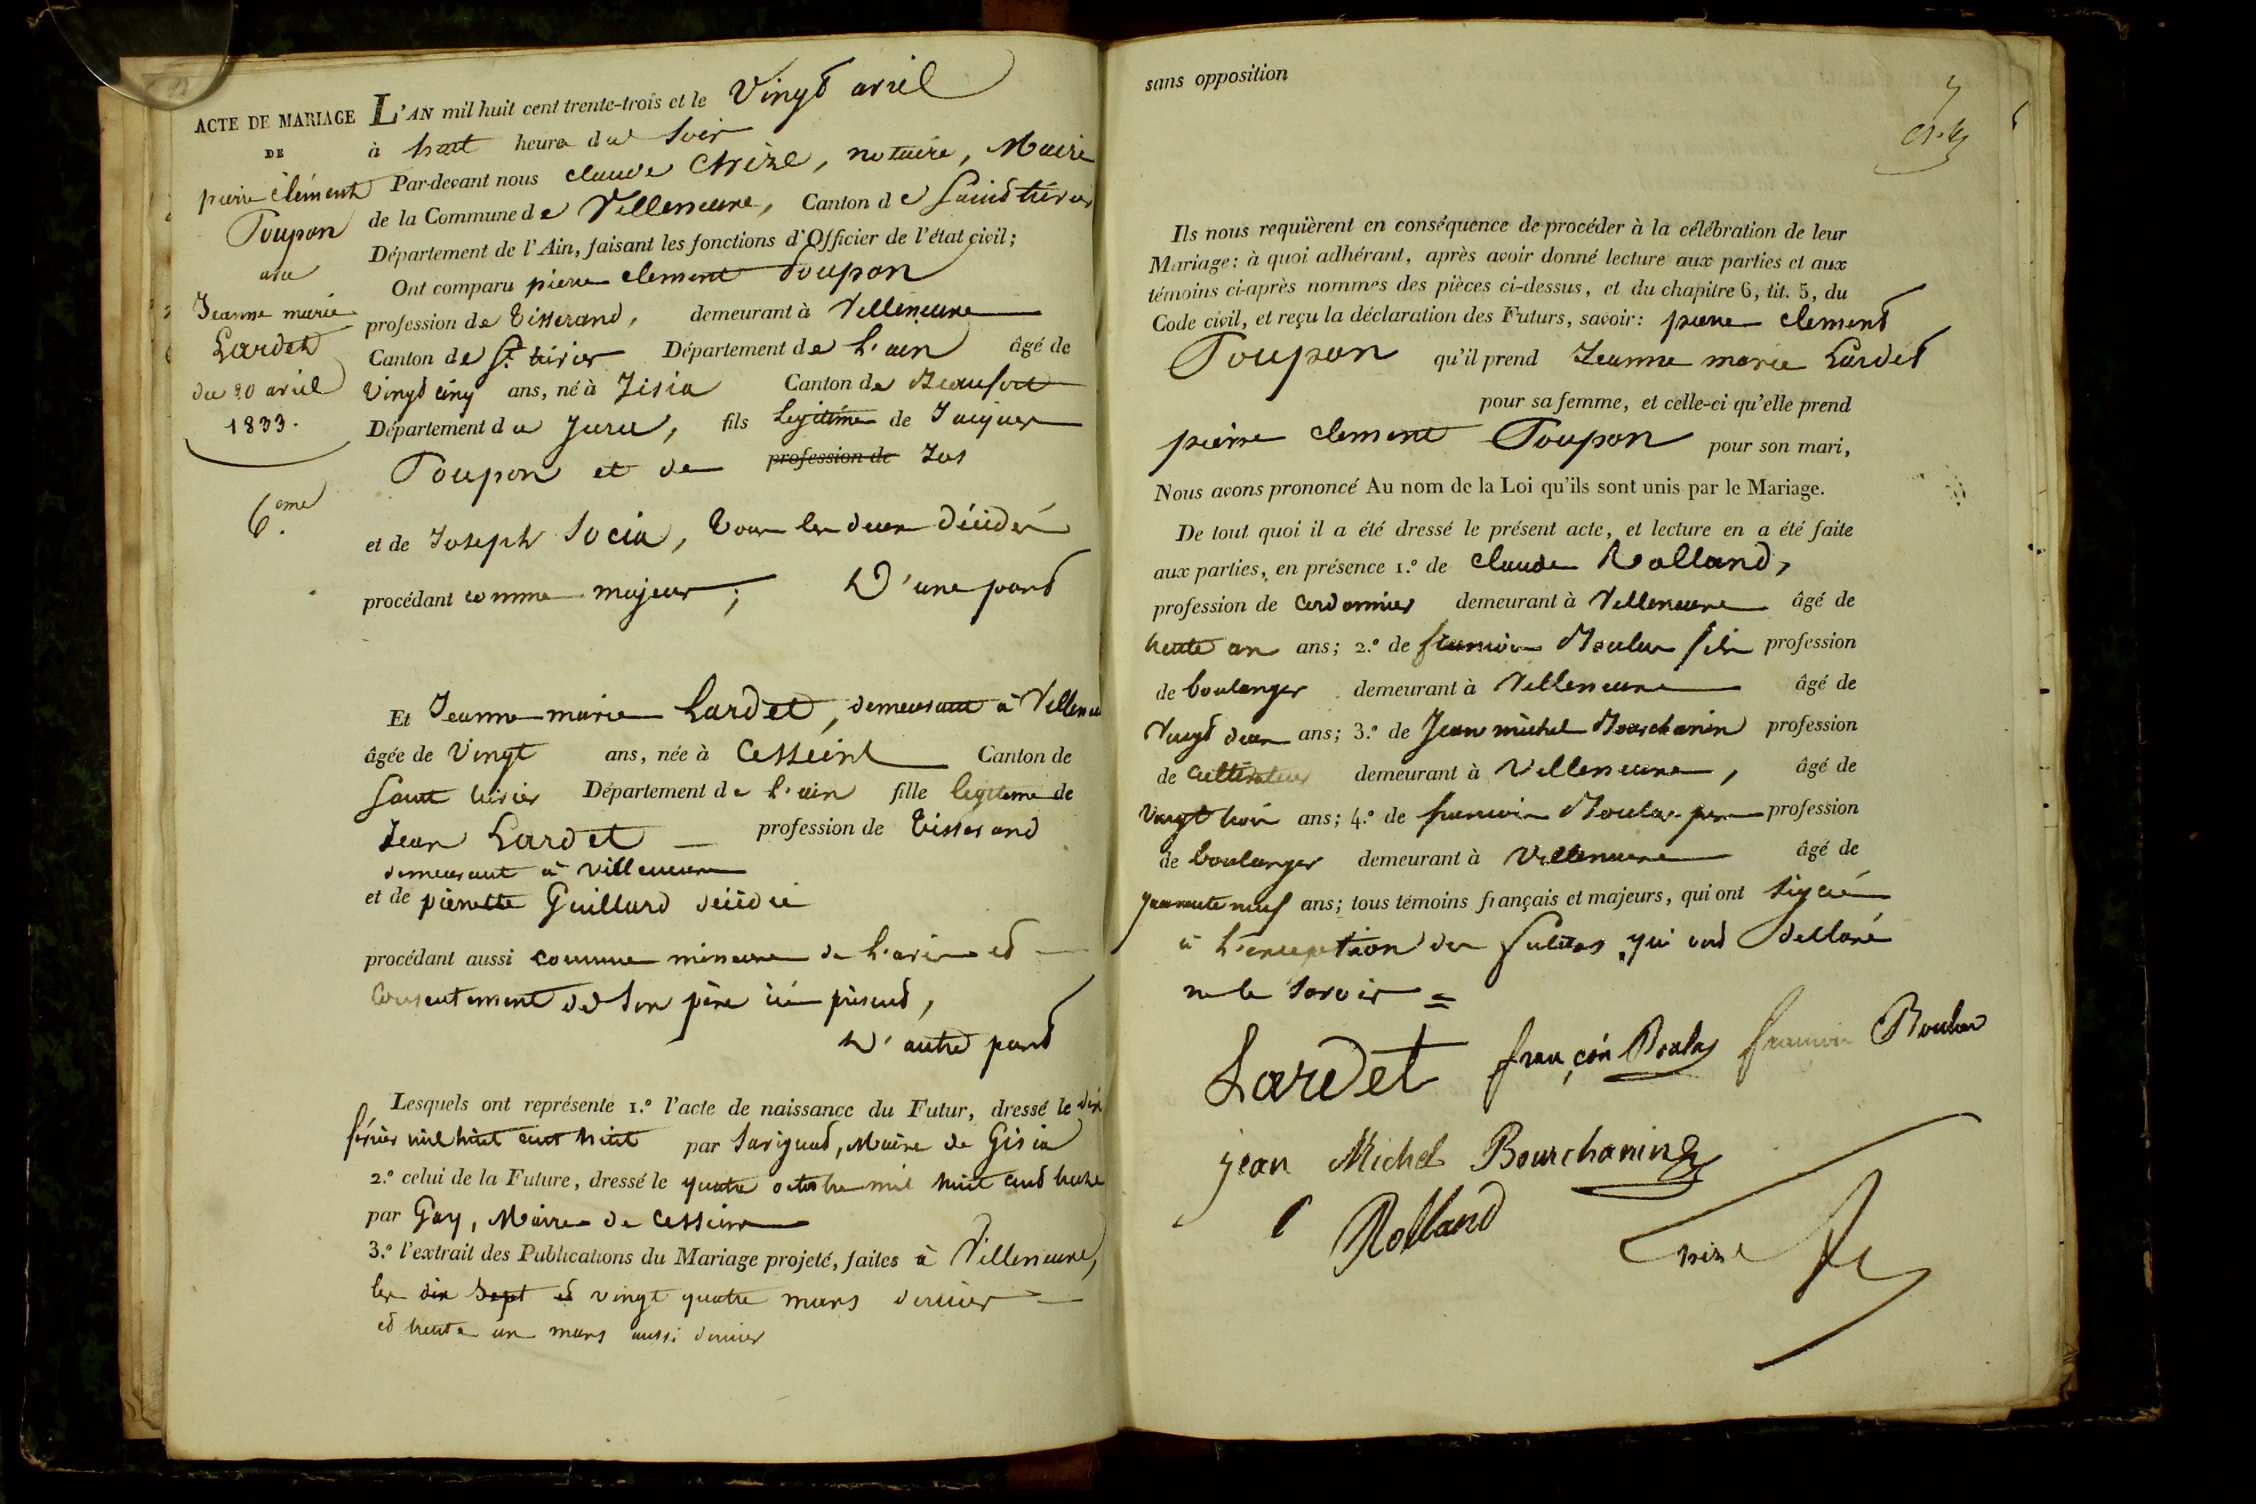 ACTE DE MARIAGE
DE
pierre clément
Poupon
avec
Jeanne marie
Lardet
du 20 avril
1833.
6.eme
L'AN mil huit cent trente-trois et le Vingt avril
à huit heure du Soir
Par-devant nous claude Chizel, notaire, Maire
de la Commune de Villeneuve, Canton de Saint trivier
Département de l'Ain, faisant les fonctions d'Officier de l'état civil;
Ont comparu pierre clement Poupon
profession de tisserand, demeurant à Villeneuve
Canton de St. trivier Département de L'ain âgé de
Vingt cinq ans, né à Jisia Canton de Beaufort
Département du Jura, fils Legitime de Jacques
Poupon et de profession de Jos
et de Joseph Socia, tous les deux décédés
procédant comme majeur; D'une part
Et Jeanne marie Lardet, demeurant à Villeneuve
âgée de Vingt ans, née à Cesseins Canton de
Saint trivier Département de L'ain fille legitime de
Jean Lardet profession de tisserand
demeurant à Villeneuve
et de pierrette Guillard décédée
procédant aussi comme mineure de L'avis et
Consentement de Son père ici présent,
D'autre part
Lesquels ont représenté 1.º l'acte de naissance du Futur, dressé le dix
février mil huit cent huit par , Maire de Gisia
2.º celui de la Future, dressé le quatre octobre mil huit cent treize
par Gay, Maire de Cesseins
3.º l'extrait des Publications du Mariage projeté, faites à Villeneuve,
les dix sept et vingt quatre mars dernier
et trente un mars aussi dernier
sans opposition
7
Ils nous requièrent en conséquence de procéder à la célébration de leur
Mariage: à quoi adhérant, après avoir donné lecture aux parties et aux
témoins ci-après nommés des pièces ci-dessus, et du chapitre 6, tit. 5, du
Code civil, et reçu la déclaration des Futurs, savoir: pierre clement
Poupon qu'il prend Jeanne marie Lardet
pour sa femme, et celle-ci qu'elle prend
pierre clement Poupon pour son mari,
Nous avons prononcé Au nom de la Loi qu'ils sont unis par le Mariage.
De tout quoi il a été dressé le présent acte, et lecture en a été faite
aux parties, en présence 1.º de claude Rolland,
profession de cordonnier demeurant à Villeneuve âgé de
trente un ans; 2.º de francois Boulas fils profession
de boulanger demeurant à Villeneuve âgé de
Vingt deux ans; 3.º de Jean michel Bourchanin profession
de Cultivateur demeurant à Villeneuve, âgé de
Vingt trois ans; 4.º de francois Boulas pere profession
de boulanger demeurant à Villeneuve âgé de
quarante neuf ans; tous témoins français et majeurs, qui ont signé
à L'exception des futurs qui ont déclaré
ne le savoir =
Lardet françois Boulas francois Boulas
jean Michel Bourchanin
C Rolland
Chizel